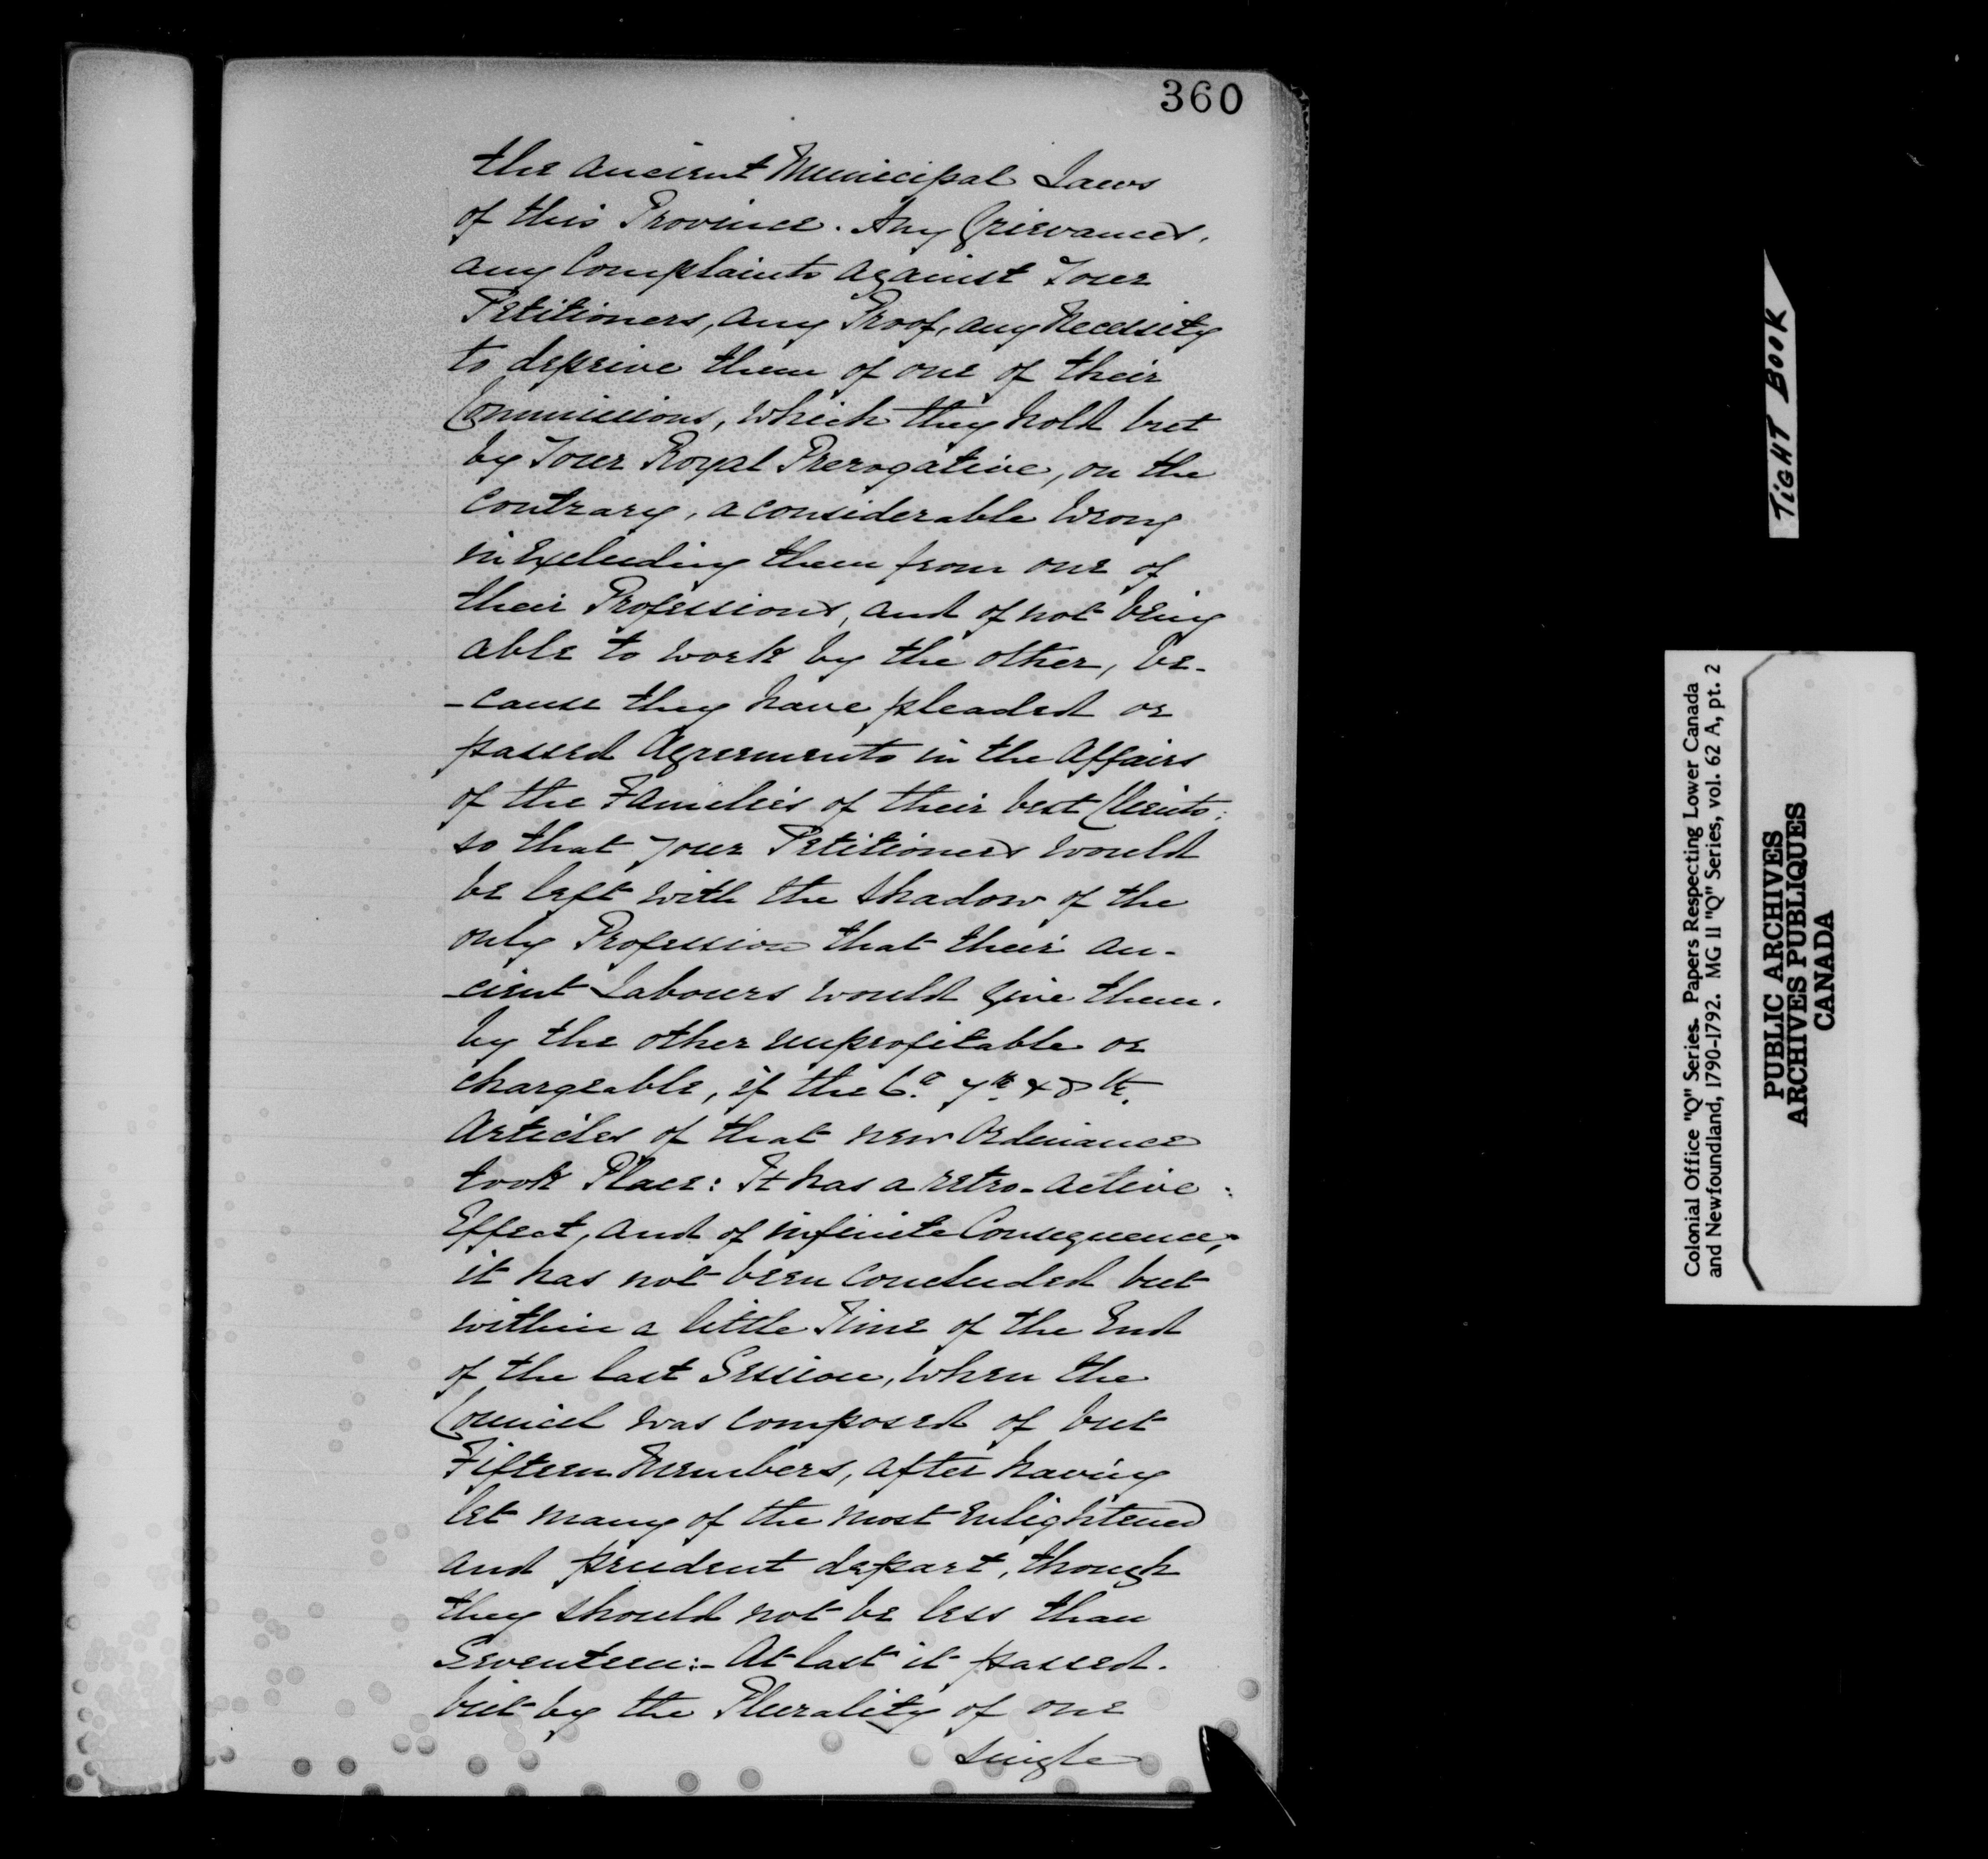 360
the ancient Municipal Laws
of this Province. Any Grievances,
any Complaints against Your
Petitioners, any Proof, any Necessity
to deprive them of one of their
Commissions, which they hold but
by Your Royal Prerogative, on the
contrary, a considerable Wrong
in Excluding them from one of
their Professions, and of not being
able to work by the other, be-
-cause they have pleaded or
passed Agreements in the Affairs
of the Families of their best Clients;
so that your Petitioners would
be left with the shadow of the
only Profession that their an-
-cient Labours would give them.
by the other unprofitable or
chargeable, if the 6th 7th & 8th
Articles of that new Ordinance
took Place: It has a retro-active
Effect, and of infinite Consequence,
it has not been concluded but
within a little Time of the End
of the last Session, when the
Council was composed of but
Fifteen Members, after having
let many of the most Enlightened
and prudent depart, though
they should not be less than
Seventeen:- At last it passed.
but by the Plurality of one
single
TIGHT BOOK
Colonial Office "Q" Series. Papers Respecting Lower Canada
and Newfoundland, 1790-1792. MG 11 "Q" Series, vol. 62 A, pt. 2
PUBLIC ARCHIVES
ARCHIVES PUBLIQUES
CANADA